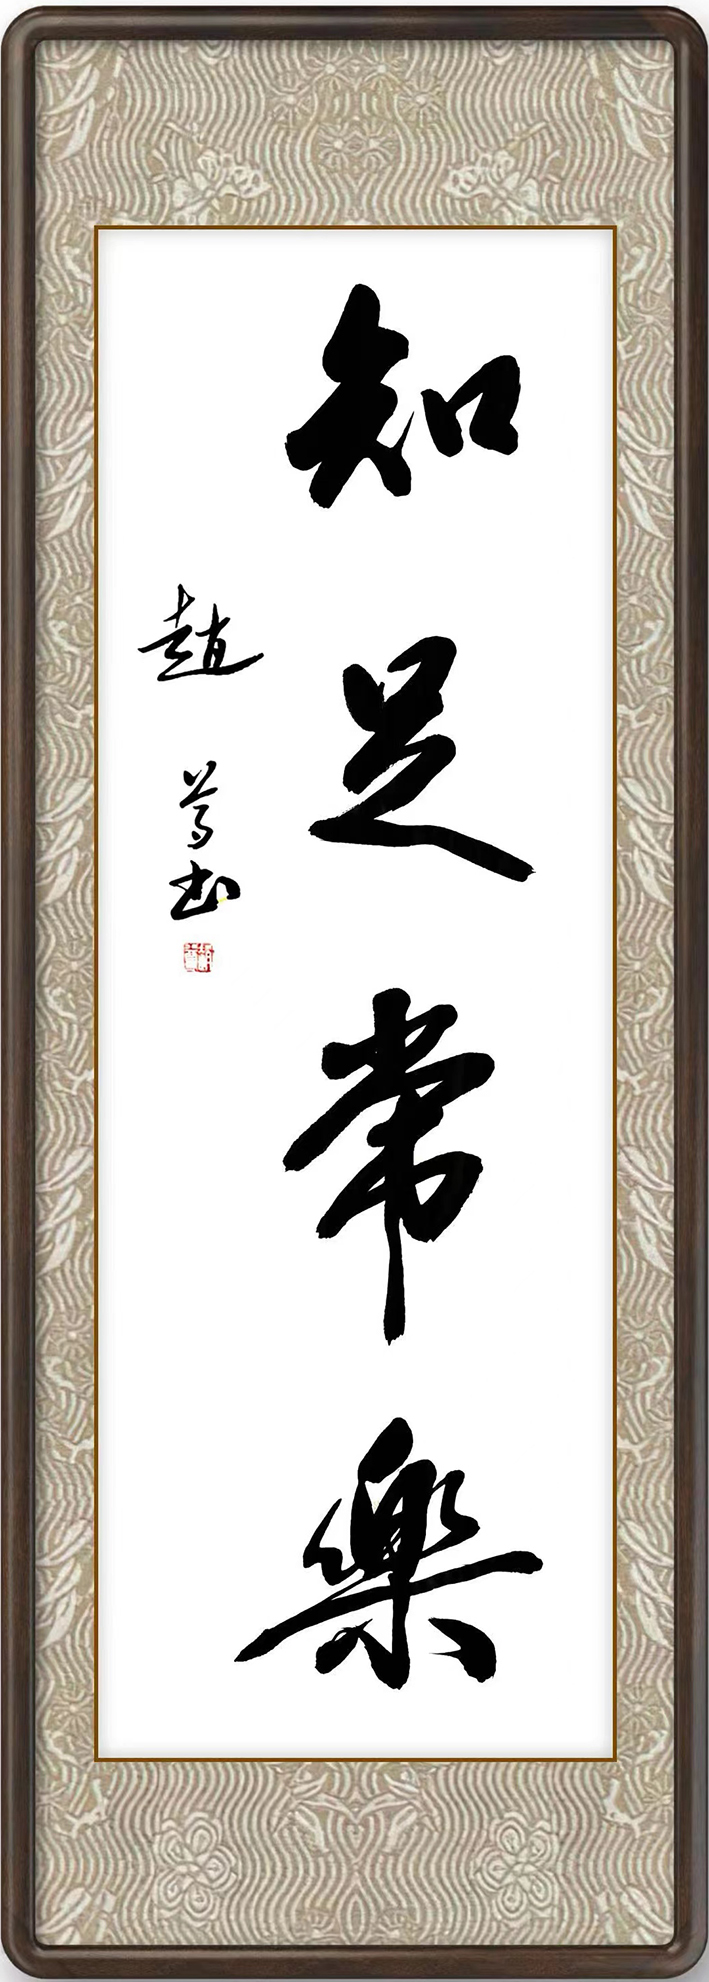 知足常樂
趙